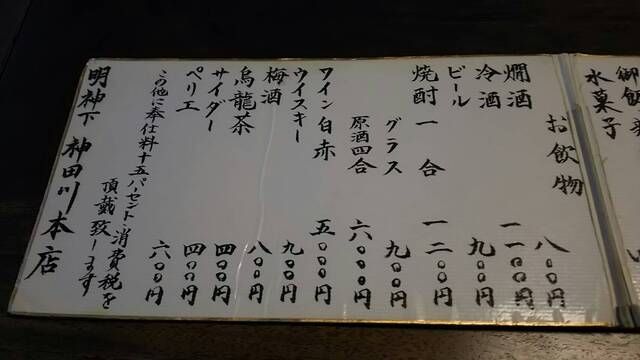 水菓子
お飲物
燗酒 八〇〇円
冷酒 一一〇〇円
ビール 九〇〇円
焼酎 一合 一二〇〇円
グラス 九〇〇円
原酒四合 六〇〇〇円
ワイン白赤 五〇〇〇円
ウイスキー 九〇〇円
梅酒 八〇〇円
烏龍茶 四〇〇円
サイダー 四〇〇円
ペリエ 六〇〇円
この他に奉仕料十五パーセント消費税を
頂戴致します
明神下 神田川本店